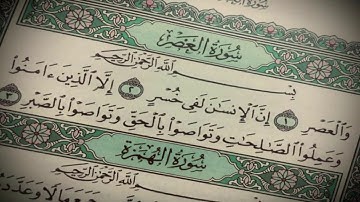 سُورَةُ الْعَصْرِ
بِسْمِ اللَّهِ الرَّحْمَٰنِ الرَّحِيمِ
وَالْعَصْرِ ١ إِنَّ الْإِنسَانَ لَفِي خُسْرٍ ٢ إِلَّا الَّذِينَ ءَامَنُوا
وَعَمِلُوا الصَّالِحَاتِ وَتَوَاصَوْا بِالْحَقِّ وَتَوَاصَوْا بِالصَّبْرِ ٣
سُورَةُ الْهُمَزَةِ
بِسْمِ اللَّهِ الرَّحْمَٰنِ الرَّحِيمِ
جَمَعَ مَالًا وَعَدَّدَهُ